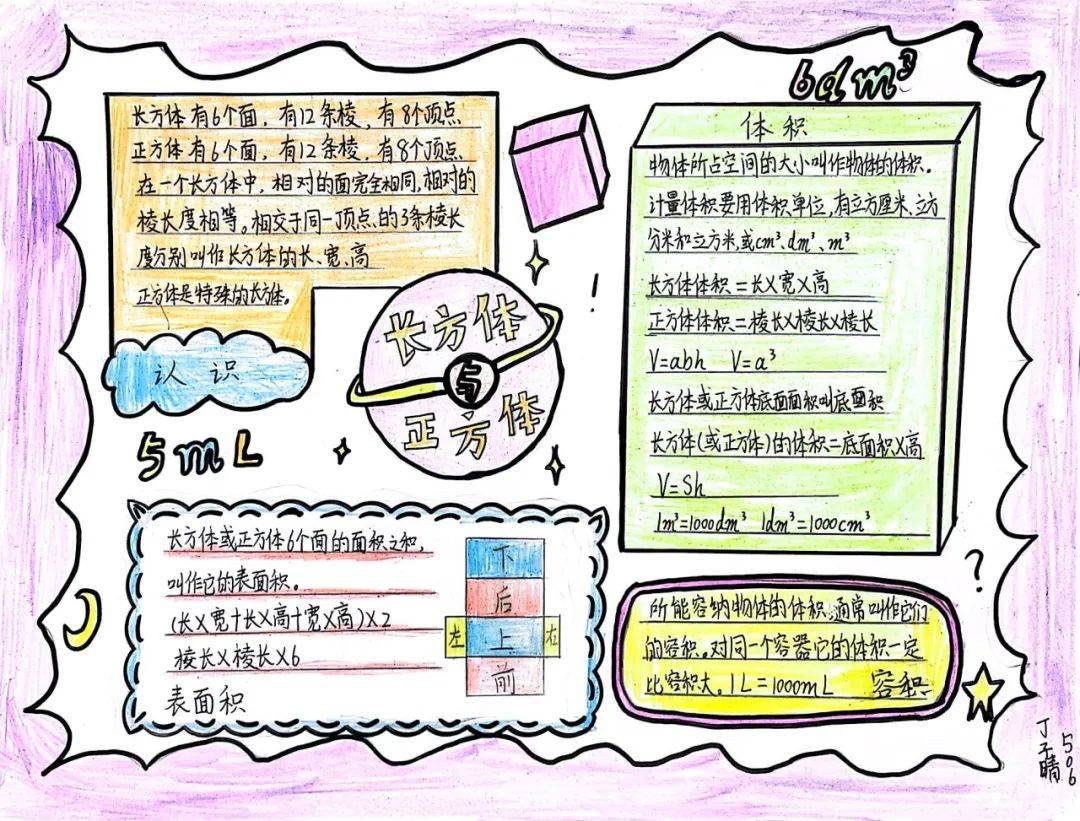 长方体有6个面，有12条棱，有8个顶点
正方体有6个面，有12条棱，有8个顶点
在一个长方体中，相对的面完全相同，相对的
棱长度相等。相交于同一顶点的3条棱长
度分别叫作长方体的长、宽、高
正方体是特殊的长方体。
认识
长方体
与
正方体
5mL
6dm³
体积
物体所占空间的大小叫作物体的体积。
计量体积要用体积单位，有立方厘米、立方
分米和立方米，或cm³、dm³、m³
长方体体积=长×宽×高
正方体体积=棱长×棱长×棱长
V=abh V=a³
长方体或正方体底面面积叫底面积
长方体(或正方体)的体积=底面积×高
V=Sh
1m³=1000dm³ 1dm³=1000cm³
长方体或正方体6个面的面积之和，
叫作它的表面积。
(长×宽+长×高+宽×高)×2
棱长×棱长×6
表面积
下
后
左 上 右
前
所能容纳物体的体积，通常叫作它们
的容积。对同一个容器它的体积一定
比容积大。1L=1000mL 容积
!
?
506
丁子晴